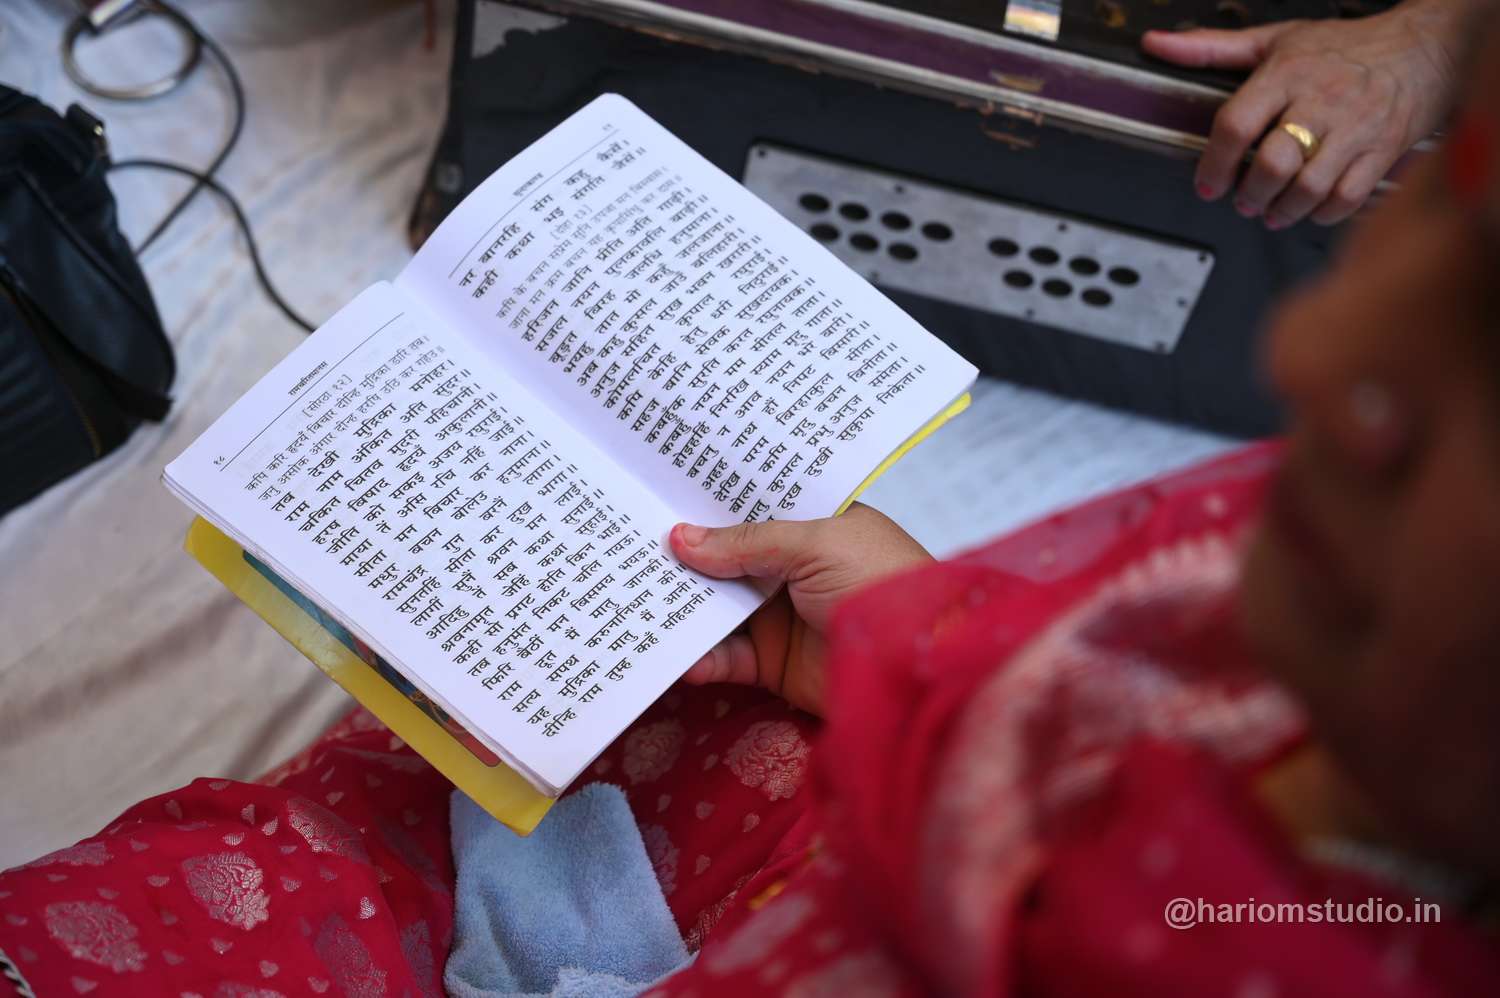 १८ रामचरितमानस
[सोरठा १२]
कपि करि हृदयँ बिचार दीन्हि मुद्रिका डारि तब।
जनु असोक अंगार दीन्ह हरषि उठि कर गहेउ॥
तब देखी मुद्रिका मनोहर।
राम नाम अंकित अति सुंदर॥
चकित चितव मुदरी पहिचानी।
हरष बिषाद हृदयँ अकुलानी॥
जीति को सकइ अजय रघुराई।
माया तें असि रचि नहिं जाई॥
सीता मन बिचार कर नाना।
मधुर बचन बोलेउ हनुमाना॥
रामचंद्र गुन बरनैं लागा।
सुनतहिं सीता कर दुख भागा॥
लागीं सुनैं श्रवन मन लाई।
आदिहु तें सब कथा सुनाई॥
श्रवनामृत जेहिं कथा सुहाई।
कही सो प्रगट होति किन भाई॥
तब हनुमंत निकट चलि गयऊ।
फिरि बैठीं मन बिसमय भयऊ॥
राम दूत मैं मातु जानकी।
सत्य सपथ करुनानिधान की॥
यह मुद्रिका मातु मैं आनी।
दीन्हि राम तुम्ह कहँ सहिदानी॥
नर बानरहि संग कहु कैसें।
कही कथा भइ संगति जैसें॥
[दोहा १३]
कपि के बचन सप्रेम सुनि उपजा मन बिस्वास।
जाना मन क्रम बचन यह कृपासिंधु कर दास॥
हरिजन जानि प्रीति अति गाढ़ी।
सजल नयन पुलकावलि बाढ़ी॥
बूड़त बिरह जलधि हनुमाना।
भयहु तात मो कहुँ जलजाना॥
अब कहु कुसल जाउँ बलिहारी।
अनुज सहित सुख भवन खरारी॥
कोमलचित कृपाल रघुराई।
कपि केहि हेतु धरी निठुराई॥
सहज बानि सेवक सुखदायक।
कबहुँक सुरति करत रघुनायक॥
कबहुँ नयन मम सीतल ताता।
होइहहिं निरखि स्याम मृदु गाता॥
बचनु न आव नयन भरे बारी।
अहह नाथ हौं निपट बिसारी॥
देखि परम बिरहाकुल सीता।
बोला कपि मृदु बचन बिनीता॥
मातु कुसल प्रभु अनुज समेता।
दुख दुखी सुकृपा निकेता॥
@hariomstudio.in